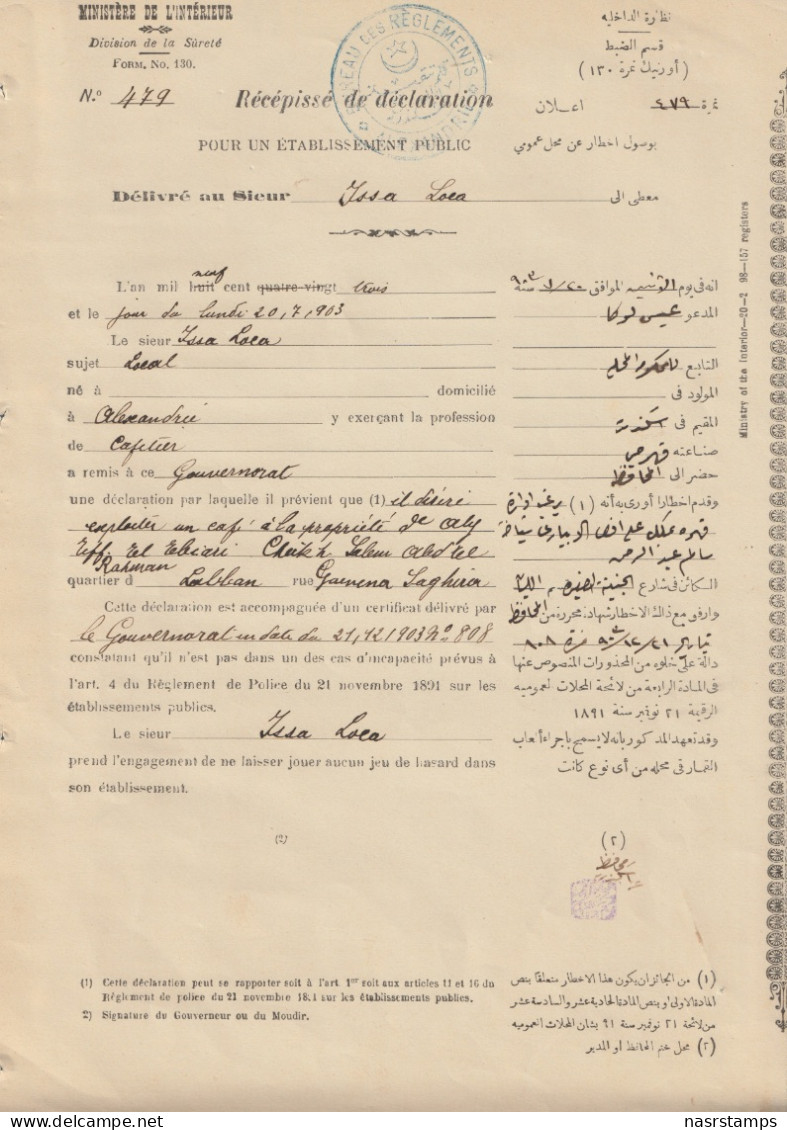 MINISTÈRE DE L'INTÉRIEUR
Division de la Sûreté
FORM. No. 130.
N.º 479
Récépissé de déclaration
POUR UN ÉTABLISSEMENT PUBLIC
Délivré au Sieur Issa Loca
BUREAU DES RÈGLEMENTS
نظارة الداخلية
قسم الضبط
(أورنيك نمرة ١٣٠)
نمرة ٤٧٩ اعلان
بوصول اخطار عن محل عمومي
معطى الى
L'an mil huit neuf cent quatre-vingt trois
et le jour du lundi 20,7,1903
Le sieur Issa Loca
sujet Local
né à domicilié
à Alexandrie y exerçant la profession
de Cafetier
a remis à ce Gouvernorat
une déclaration par laquelle il prévient que (1) il désire
exploiter un café à la propriété de Aly
Eff. El Ebiari Cheikh Salem Abd el
Rahman
quartier d Labban rue Guenena Saghira
Cette déclaration est accompagnée d'un certificat délivré par
le Gouvernorat en date du 21,12,1903 Nº 808
constatant qu'il n'est pas dans un des cas d'incapacité prévus à
l'art. 4 du Règlement de Police du 21 novembre 1891 sur les
établissements publics.
Le sieur Issa Loca
prend l'engagement de ne laisser jouer aucun jeu de hasard dans
son établissement.
(2)
انه في يوم الموافق سنة
المدعو عيسى لوكا
التابع
المولود فى
المقيم فى
صناعته قهوجى
حضر الى المحافظة
وقدم اخطارا أورى به أنه (١) يرغب ادارة
سالم عبد الرحمن
الكائن فى شارع
وارفق مع ذلك الاخطار شهادة محررة من المحافظة
٨٠٨
دالة على خلوه من المحذورات المنصوص عنها
فى المادة الرابعة من لائحة المحلات العموميه
الرقيمة ٢١ نوفمبر سنة ١٨٩١
وقد تعهد المذكور بانه لا يسمح باجراء ألعاب
القمار فى محله من أى نوع كانت
(٢)
(1) Cette déclaration peut se rapporter soit à l'art 1er soit aux articles 11 et 16 du
Règlement de police du 21 novembre 1891 sur les établissements publics.
2) Signature du Gouverneur ou du Moudir.
(١) من الجائز ان يكون هذا الاخطار متعلقا بنص
المادة الاولى او بنص المادة الحادية عشر والسادسة عشر
من لائحة ٢١ نوفمبر سنة ٩١ بشان المحلات العموميه
(٢) محل ختم المحافظ او المدير
Ministry of the Interior—20-2 98—157 registers
nasrstamps